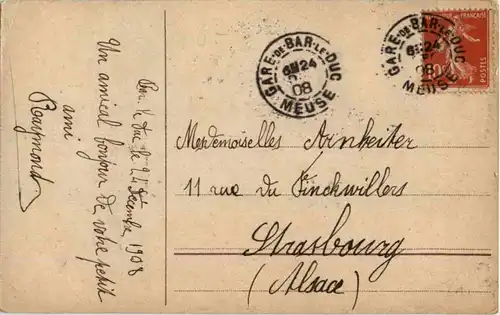 Bar le Duc le 24 décembre 1908
Un amical bonjour de votre petit
ami
Raymond
GARE-DE-BAR-LE-DUC
24
08
MEUSE
GARE-DE-BAR-LE-DUC
24
08
MEUSE
FRANÇAISE
POSTES
10
Mesdemoiselles Arnheiter
11 rue du Finckwillers
Strasbourg
(Alsace)